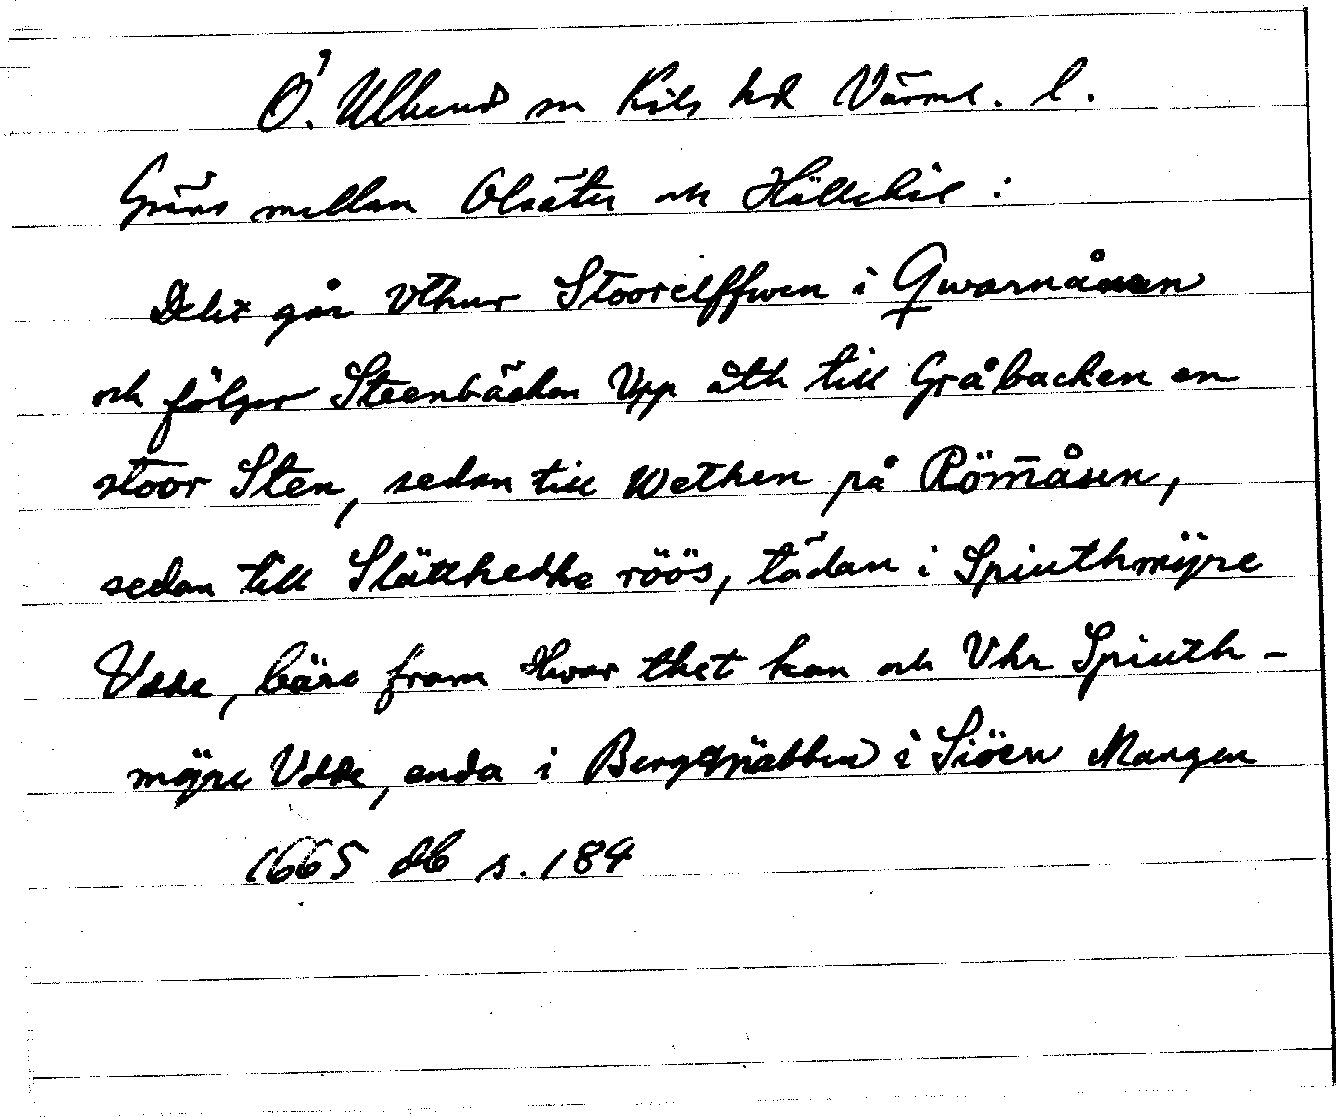 Ö. Ullerud sn Kils hd Värml. l.
Gräns mellan Olsäter och Hällekil :
Dehr går Vthur Stoorelffwen i Qwarnåen
och följer Steenbäcken Vpp åth till Gråbacken en
stoor Sten, sedan till Wethen på Römåsen,
sedan till Slätthedhe röös, tädan i Spiuthmÿre
Udde, bäre fram Hwar thet kan och Vhr Spiuth-
mÿre Udde, enda i Bergsnäbben i Siöen Mangen
1665 db s. 184